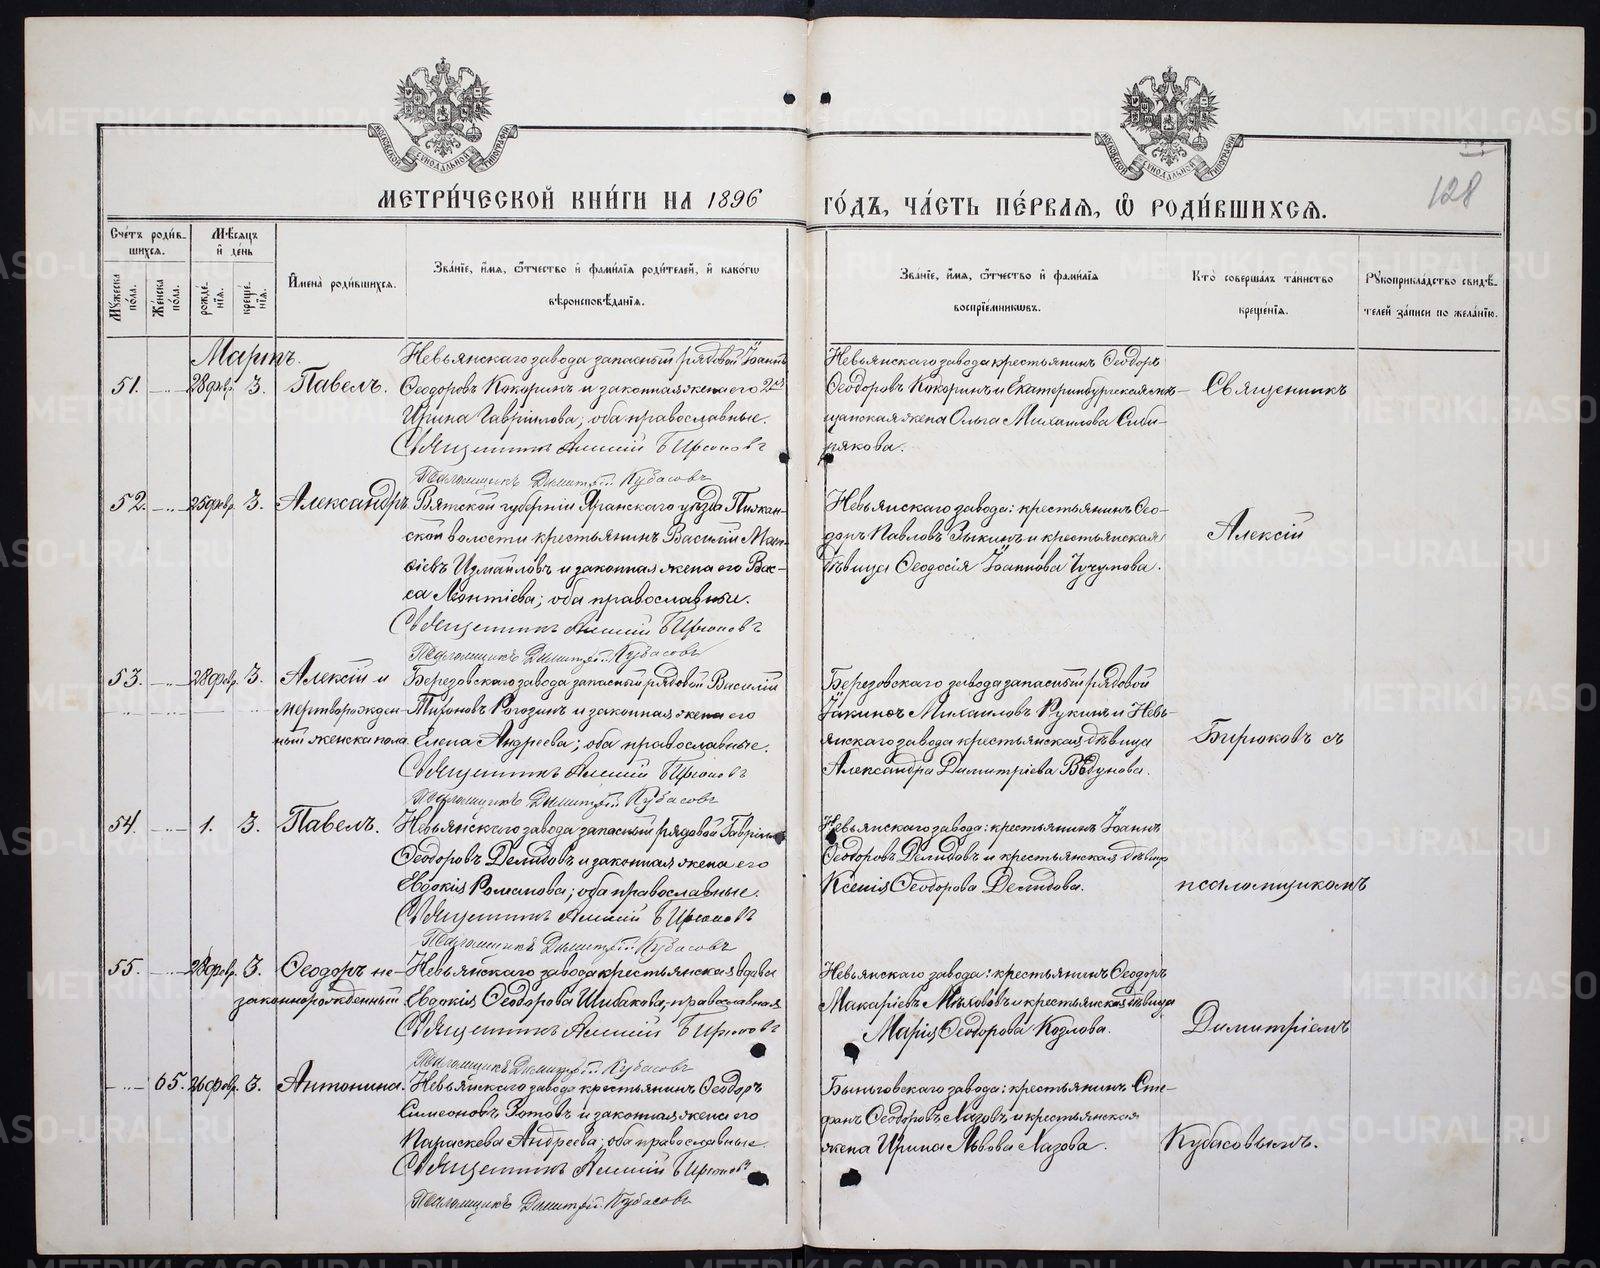 МОСКОВСКОЙ СѴНОДАЛЬНОЙ ТИПОГРАФІИ
МОСКОВСКОЙ СѴНОДАЛЬНОЙ ТИПОГРАФІИ
МЕТРИ́ЧЕСКОЙ КНИ́ГИ НА 1896
ГО́ДЪ, ЧА́СТЬ ПЕ́РВАЯ, Ѡ РОДИ́ВШИХСЯ.
128
Счетъ родив-
шихся.
Мѣсяцъ
и день
Мужеска пола.
Женска пола.
рожде-
нія.
креще-
нія.
Имена родившихся.
Званіе, имя, ѿчество и фамилія родителей, и какогѡ
вѣроисповѣданія.
Званіе, имя, ѿчество и фамилія
воспріемникѡвъ.
Кто совершалъ таинство
крещенія.
Рукоприкладство свидѣ-
телей записи по желанію.
Мартъ.
51. 28 февр. 3. Павелъ.
Невьянскаго завода запасный рядовой Іоаннъ
Ѳеодоровъ Кокоринъ и законная жена его 2
Ирина Гавріилова; оба православные.
Священникъ Алексій Бирюковъ
Псаломщикъ Димитрій Кубасовъ
Невьянскаго завода крестьянинъ Ѳеодоръ
Ѳеодоровъ Кокоринъ и Екатеринбургская мѣ-
щанская жена Ольга Михаилова Сиби-
рякова.
Священникъ
52. 25 февр. 3. Александръ.
Вятской губерніи Яранскаго уѣзда
ской волости крестьянинъ Василій Мат-
ѳіевъ Измайловъ и законная жена его Вас-
са Леонтіева; оба православные.
Священникъ Алексій Бирюковъ
Псаломщикъ Димитрій Кубасовъ
Невьянскаго завода: крестьянинъ Ѳео-
Павловъ и крестьянская
дѣвица Ѳеодосія Іоаннова
Алексій
53. 28 февр. 3. Алексій и
мертворожден-
ный женска пола.
Березовскаго завода запасный рядовой Василій
Тихоновъ Рогозинъ и законная жена его
Елена Андреева; оба православные.
Священникъ Алексій Бирюковъ
Псаломщикъ Димитрій Кубасовъ
Березовскаго завода запасный рядовой
Іакинѳъ Михаиловъ Рукинъ и Невь-
янскаго завода крестьянская дѣвица
Александра Димитріева Вѣдунова.
Бирюковъ съ
54. 1. 3. Павелъ.
Невьянскаго завода запасный рядовой Гавріилъ
Ѳеодоровъ Демидовъ и законная жена его
Евдокія Романова; оба православные.
Священникъ Алексій Бирюковъ
Псаломщикъ Димитрій Кубасовъ
Невьянскаго завода: крестьянинъ Іоаннъ
Ѳеодоровъ Демидовъ и крестьянская дѣвица
Ксенія Ѳеодорова Демидова.
псаломщикомъ
55. 28 февр. 3. Ѳеодоръ не-
законнорожденный
Невьянскаго завода крестьянская вдова
Евдокія Ѳеодорова Шибакова, православная
Священникъ Алексій Бирюковъ
Псаломщикъ Димитрій Кубасовъ
Невьянскаго завода: крестьянинъ Ѳеодоръ
Макаріевъ и крестьянская дѣвица
Марія Ѳеодорова Козлова.
Димитріемъ
65. 26 февр. 3. Антонина.
Невьянскаго завода крестьянинъ Ѳеодоръ
Симеоновъ Зотовъ и законная жена его
Параскева Андреева; оба православные.
Священникъ Алексій Бирюковъ
Псаломщикъ Димитрій Кубасовъ
Быньговскаго завода: крестьянинъ Сте-
фанъ Ѳеодоровъ Лазовъ и крестьянская
жена Ирина Львова Лазова.
Кубасовымъ.
METRIKI.GASO-URAL.RU